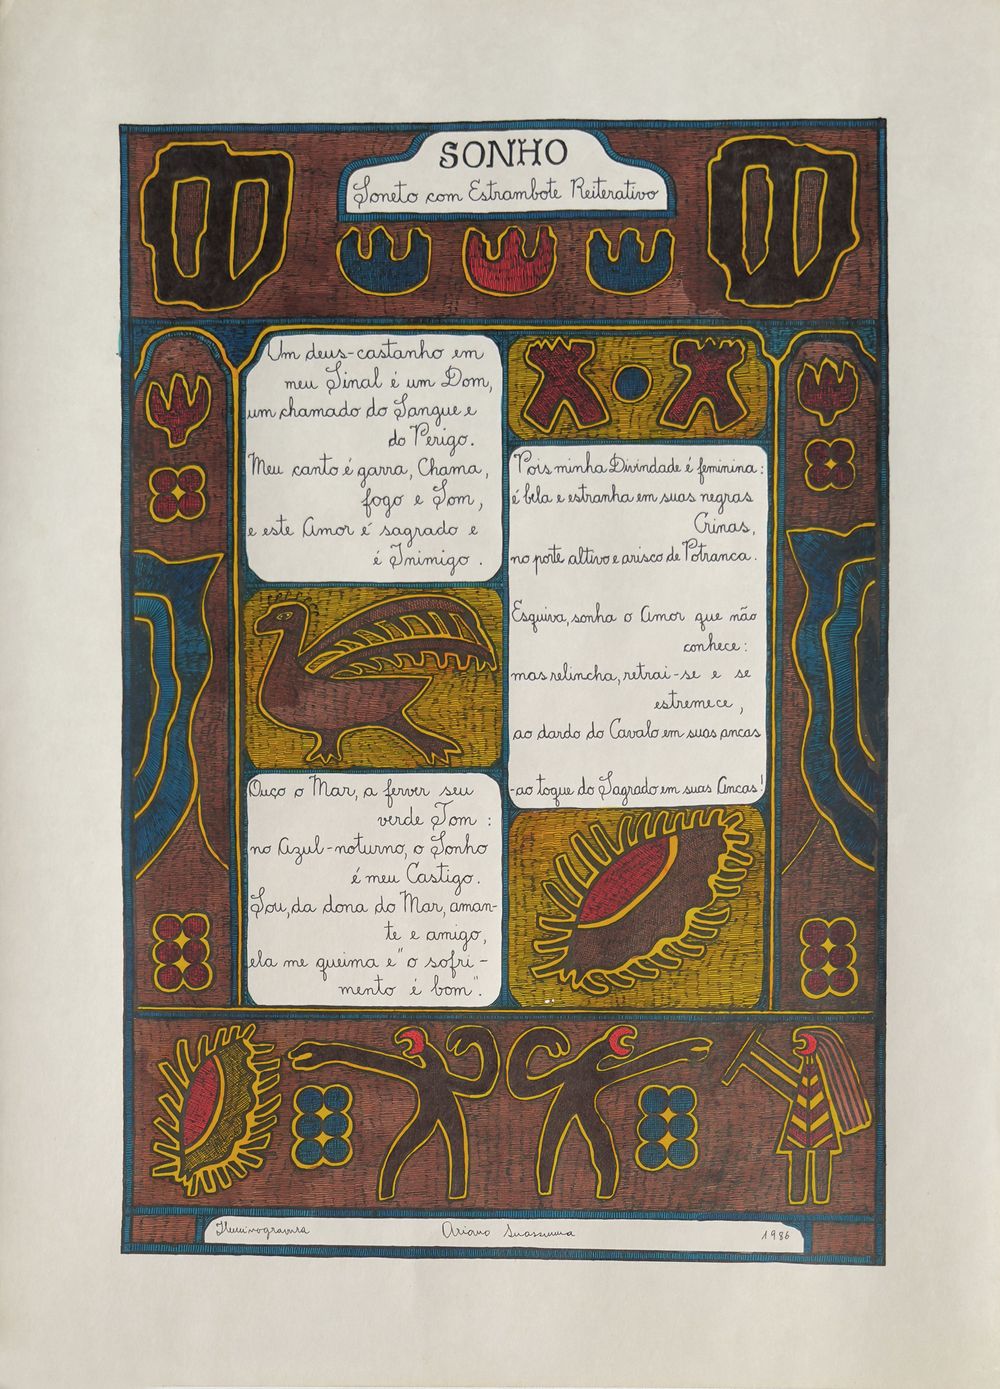 SONHO
Soneto com Estrambote Reiterativo
Um deus-castanho em
meu Sinal é um Dom,
um chamado do Sangue e
do Perigo.
Meu canto é garra, Chama,
fogo e Som,
e este Amor é sagrado e
é Inimigo.
Ouço o Mar, a ferver seu
verde Tom:
no Azul-noturno, o Sonho
é meu Castigo.
Sou, da dona do Mar, aman-
te e amigo,
ela me queima e "o sofri-
mento é bom".
Pois minha Divindade é feminina:
é bela e estranha em suas negras
Crinas,
no porte altivo e arisco de Potranca.
Esquiva, sonha o Amor que não
conhece:
mas relincha, retrai-se e se
estremece,
ao dardo do Cavalo em suas ancas
-ao toque do Sagrado em suas Ancas!
Iluminogravura Ariano Suassuna 1986